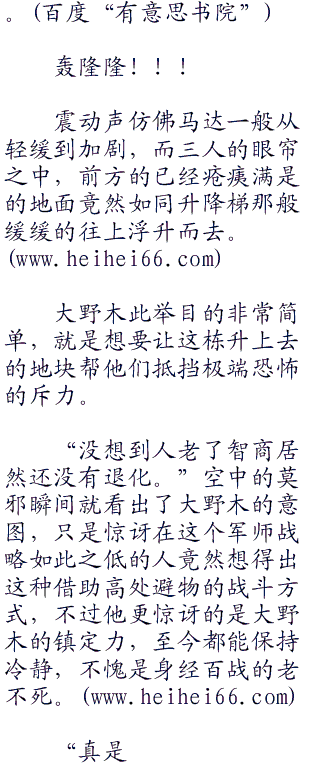 。(百度“有意思书院”)
轰隆隆！！！
震动声仿佛马达一般从
轻缓到加剧，而三人的眼帘
之中，前方的已经疮痍满是
的地面竟然如同升降梯那般
缓缓的往上浮升而去。
(www.heihei66.com)
大野木此举目的非常简
单，就是想要让这栋升上去
的地块帮他们抵挡极端恐怖
的斥力。
“没想到人老了智商居
然还没有退化。”空中的莫
邪瞬间就看出了大野木的意
图，只是惊讶在这个军师战
略如此之低的人竟然想得出
这种借助高处避物的战斗方
式，不过他更惊讶的是大野
木的镇定力，至今都能保持
冷静，不愧是身经百战的老
不死。(www.heihei66.com)
“真是